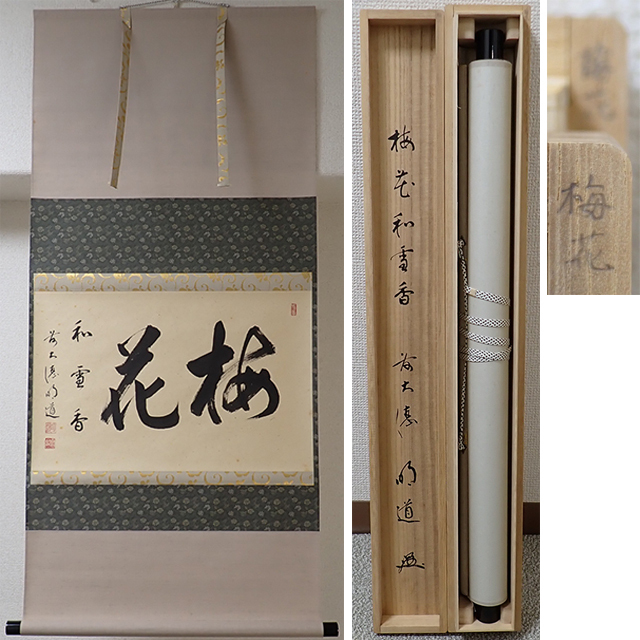 梅花
和雪香
前大徳明道
梅花和雪香
前大徳明道
梅花